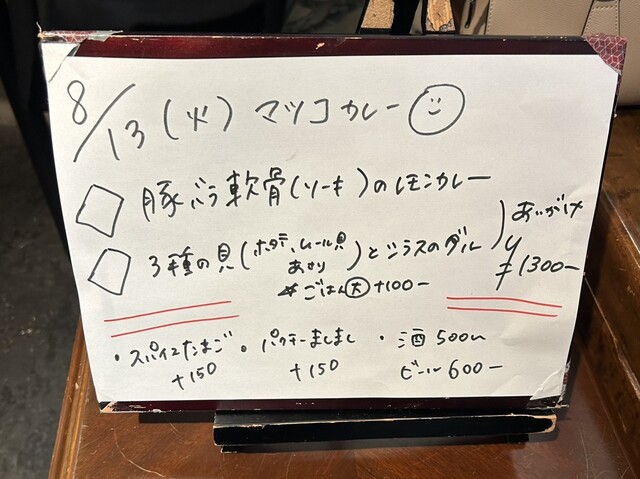 8/13(火) マツコカレー
豚バラ軟骨(ソーキ)のレモンカレー
3種の貝(ホタテ、ムール貝 あさり)とシラスのダル
あいがけ ¥1300-
※ごはん大+100-
・スパイスたまご +150
・パクチーましまし +150
・酒 500~
ビール 600-